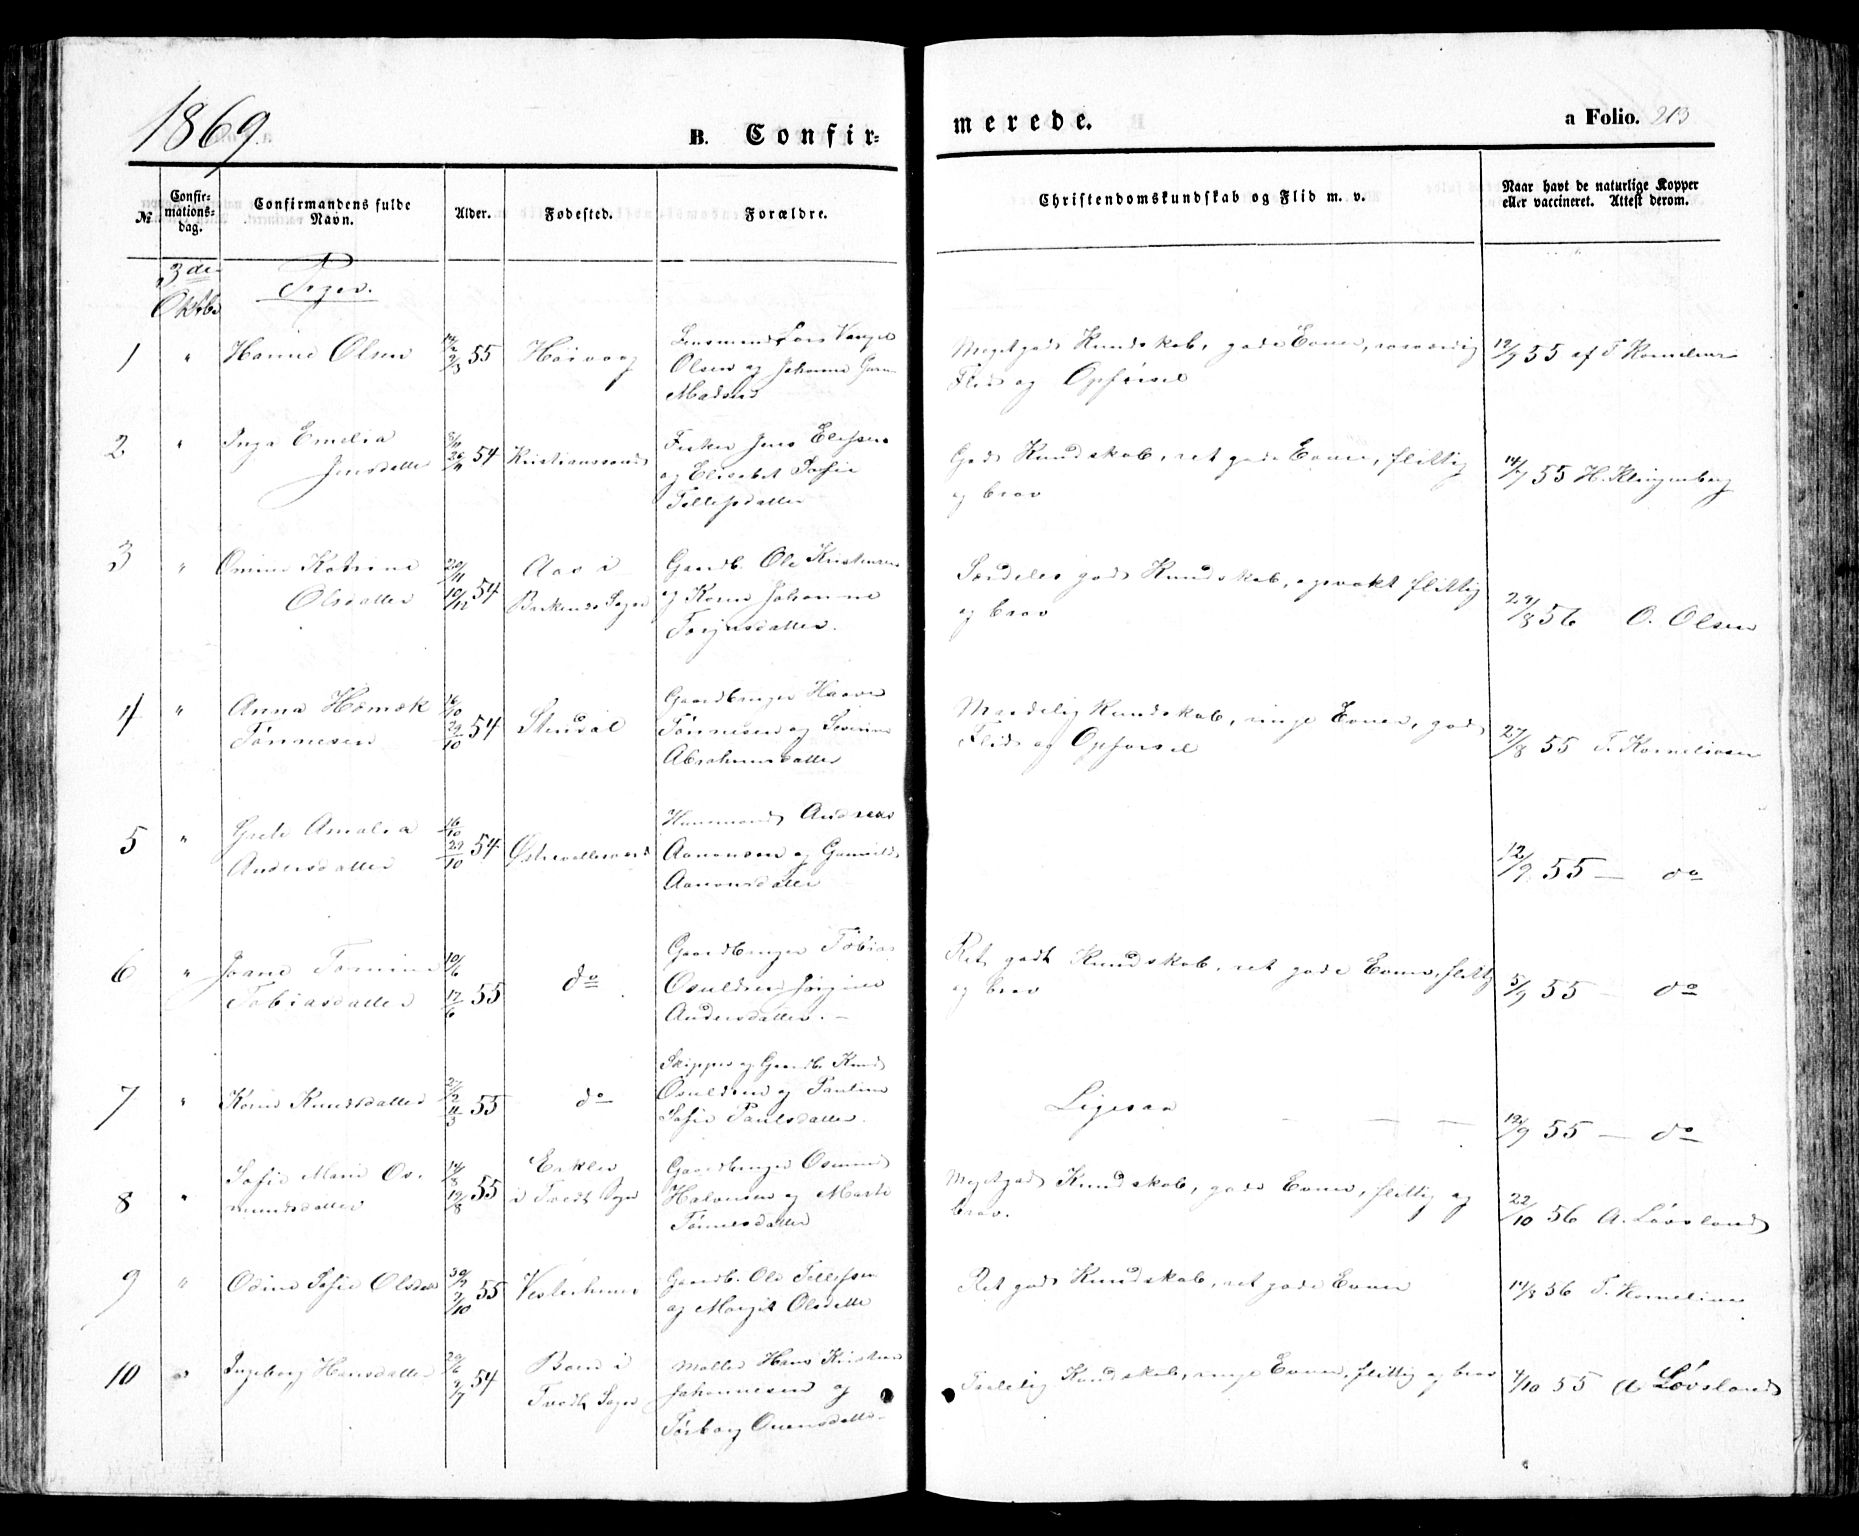 1869
B. Confir=
merede.
a Folio. 213
№
Confir-
mations-
dag.
Confirmandens fulde
Navn.
Alder.
Fødested.
Forældre.
Christendomskundskab og Flid m. v.
Naar havt de naturlige Kopper
eller vaccineret. Attest derom.
3die
Oktbr
Piger.
1 " Hanne Olsen 55 Høivaag
Lensmand Lars
Olsen og Johanne
Madsen
Megetgod Kundskab, gode Evner, roesværdig
Flid og Opførsel
12/9 55 af T. Kornelius
2 " Inga Emelia
Jensdatter
5/11 26/11 54 Kristianssand
Fisker Jens Elefsen
og Elisabet Sofie
Tellefsdatter
God Kundskab, ret gode Evner, flittig
og brav
14/7 55 H. Klingenberg
3 " Omine Katrine
Olsdatter
20/11 10/12 54
Aas i
Sogn
Gaardb. Ole Kristensen
og Karen Johanne
Torjusdatter.
Særdeles god Kundskab, opvakt flittig
og brav
29/8 56 O. Olsen
4 " Anna
Tønnesen
16/10 29/10 54 Stendal
Gaardbruger Haaver
Tønnesen og Severine
Abrahamsdatter
Maadelig Kundskab, ringe Evner, god
Flid og Opførsel
27/8 55 T. Korneliusen
5 " Grete Amalia
Andersdatter
16/10 29/10 54 Østrevallesverd
Huusmand Andreas
Aanonsen og Gunnild
Aanonsdatter
12/9 55 — do
6 " Joane Tomine
Tobiasdatter
10/6 17/6 55 do
Gaardbruger Tobias
Osuldsen Jørgine
Andersdatter. —
Ret godt Kundskab, ret gode Evner, flittig
og brav
5/9 55 — do
7 " Karen Knudsdatter 27/2 11/3 55 do
Skipper og Gaardb. Knud
Osuldsen og Pauline
Sofie Paulsdatter.
Ligesaa — — —
12/9 55 — do
8 " Sofie Marie Os-
mundsdatter
14/8 19/8 55
Erkleiv
i Tveit Sogn
Gaardbruger Osmund
Halvorsen og Marte
Tønnesdatter
Megetgod Kundskab, gode Evner, flittig og
brav.
22/10 56 A. Løvsland
9 " Odine Sofie Olsdatt 30/9 7/10 55 Vesterhuus
Gaardb. Ole Tellefsen
og Margit Olsdatter
Ret god Kundskab, ret gode Evner
14/8 56 T. Kornelius
10 " Ingeborg Hansdatter 29/6 9/7 54
Boen i
Tveit Sogn
Møller Hans Kristian
Johannesen og
Torborg Ouensdatter
Tædelig Kundskab, ringe Evner, flittig og brav
4/10 55 A Løvsland